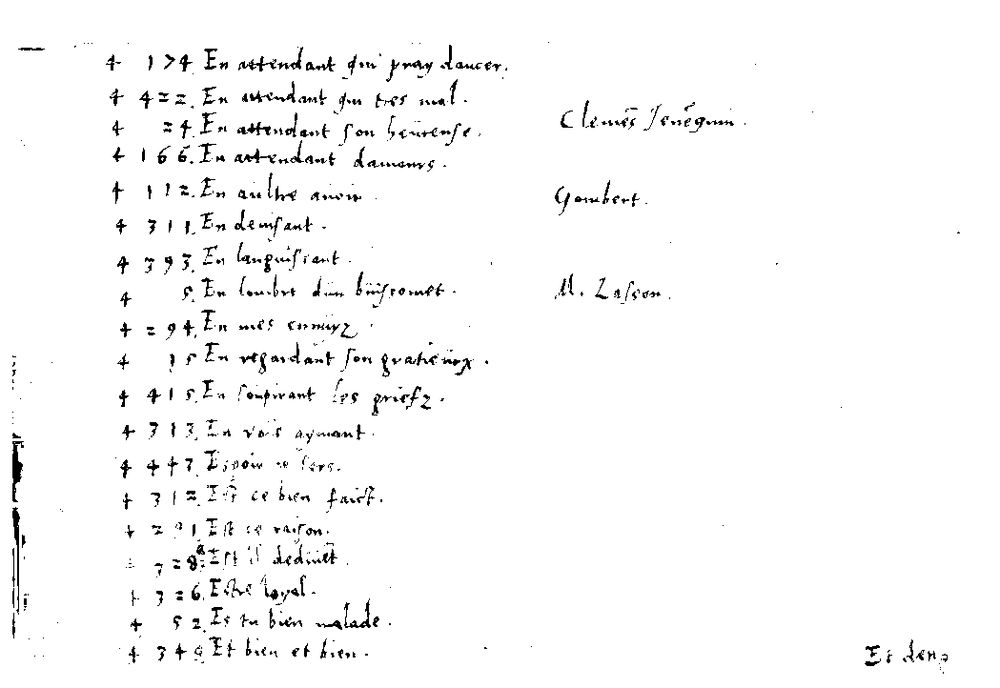 4 174. En attendant qui pray dancer.
4 422. En attendant qui tres mal.
4 24. En attendant son heureuse. Clemēs Jenēquin.
4 166. En attendant damours.
4 112. En aultre avoir. Gombert.
4 311. En devisant.
4 393. En languissant.
4 5. En lombre dun buissonnet. M. Lasson.
4 294. En mes ennuyz.
4 15 En regardant son gratieux.
4 415. En soupirant les griefz.
4 313. En vois aymant.
4 447. Espoir
4 312. Est ce bien faict.
4 291. Est ce raison.
4 328. Est il
4 326. Estre loyal.
4 52. Es tu bien malade.
4 349. Et bien et bien.
Et